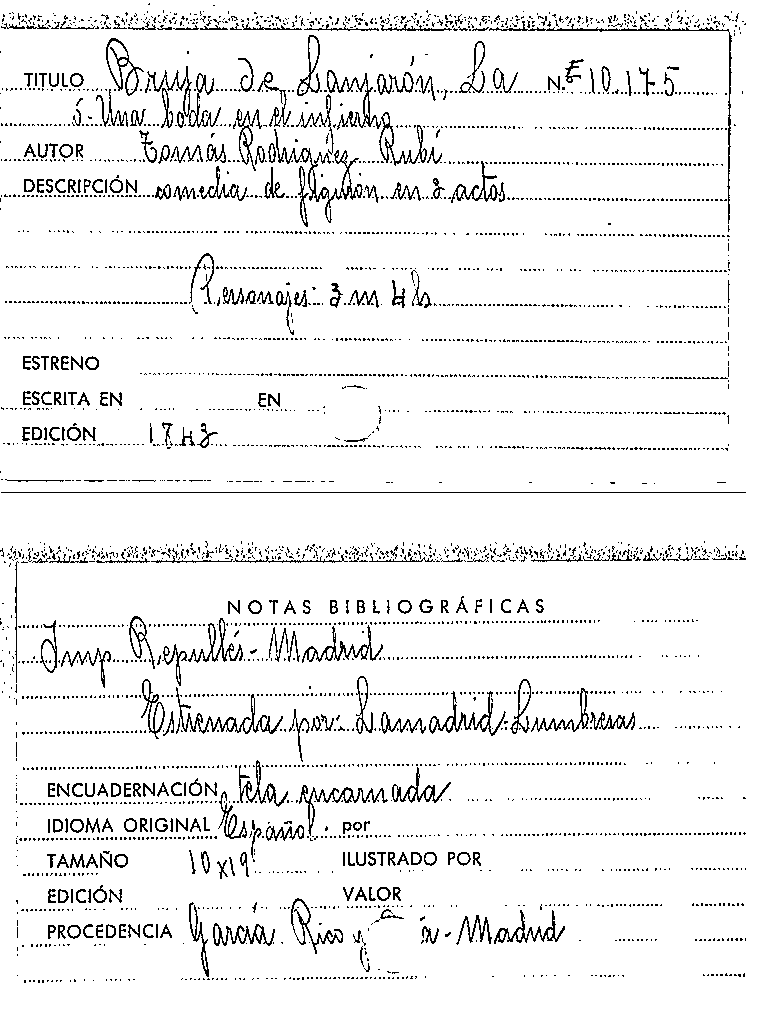 TITULO Bruja de Lanjarón, La N.E 10.175
5- Una boda en el infierno
AUTOR Tomás Rodriguez Rubí
DESCRIPCIÓN comedia de figurón en 3 actos
Personajes: 3 m 4 h
ESTRENO
ESCRITA EN EN
EDICIÓN 1843
NOTAS BIBLIOGRÁFICAS
Imp Repullés - Madrid
Estrenada por: Lamadrid-Lumbreras
ENCUADERNACIÓN tela encarnada
IDIOMA ORIGINAL Español. por
TAMAÑO 10x19 ILUSTRADO POR
EDICIÓN VALOR
PROCEDENCIA García Rico y - Madrid